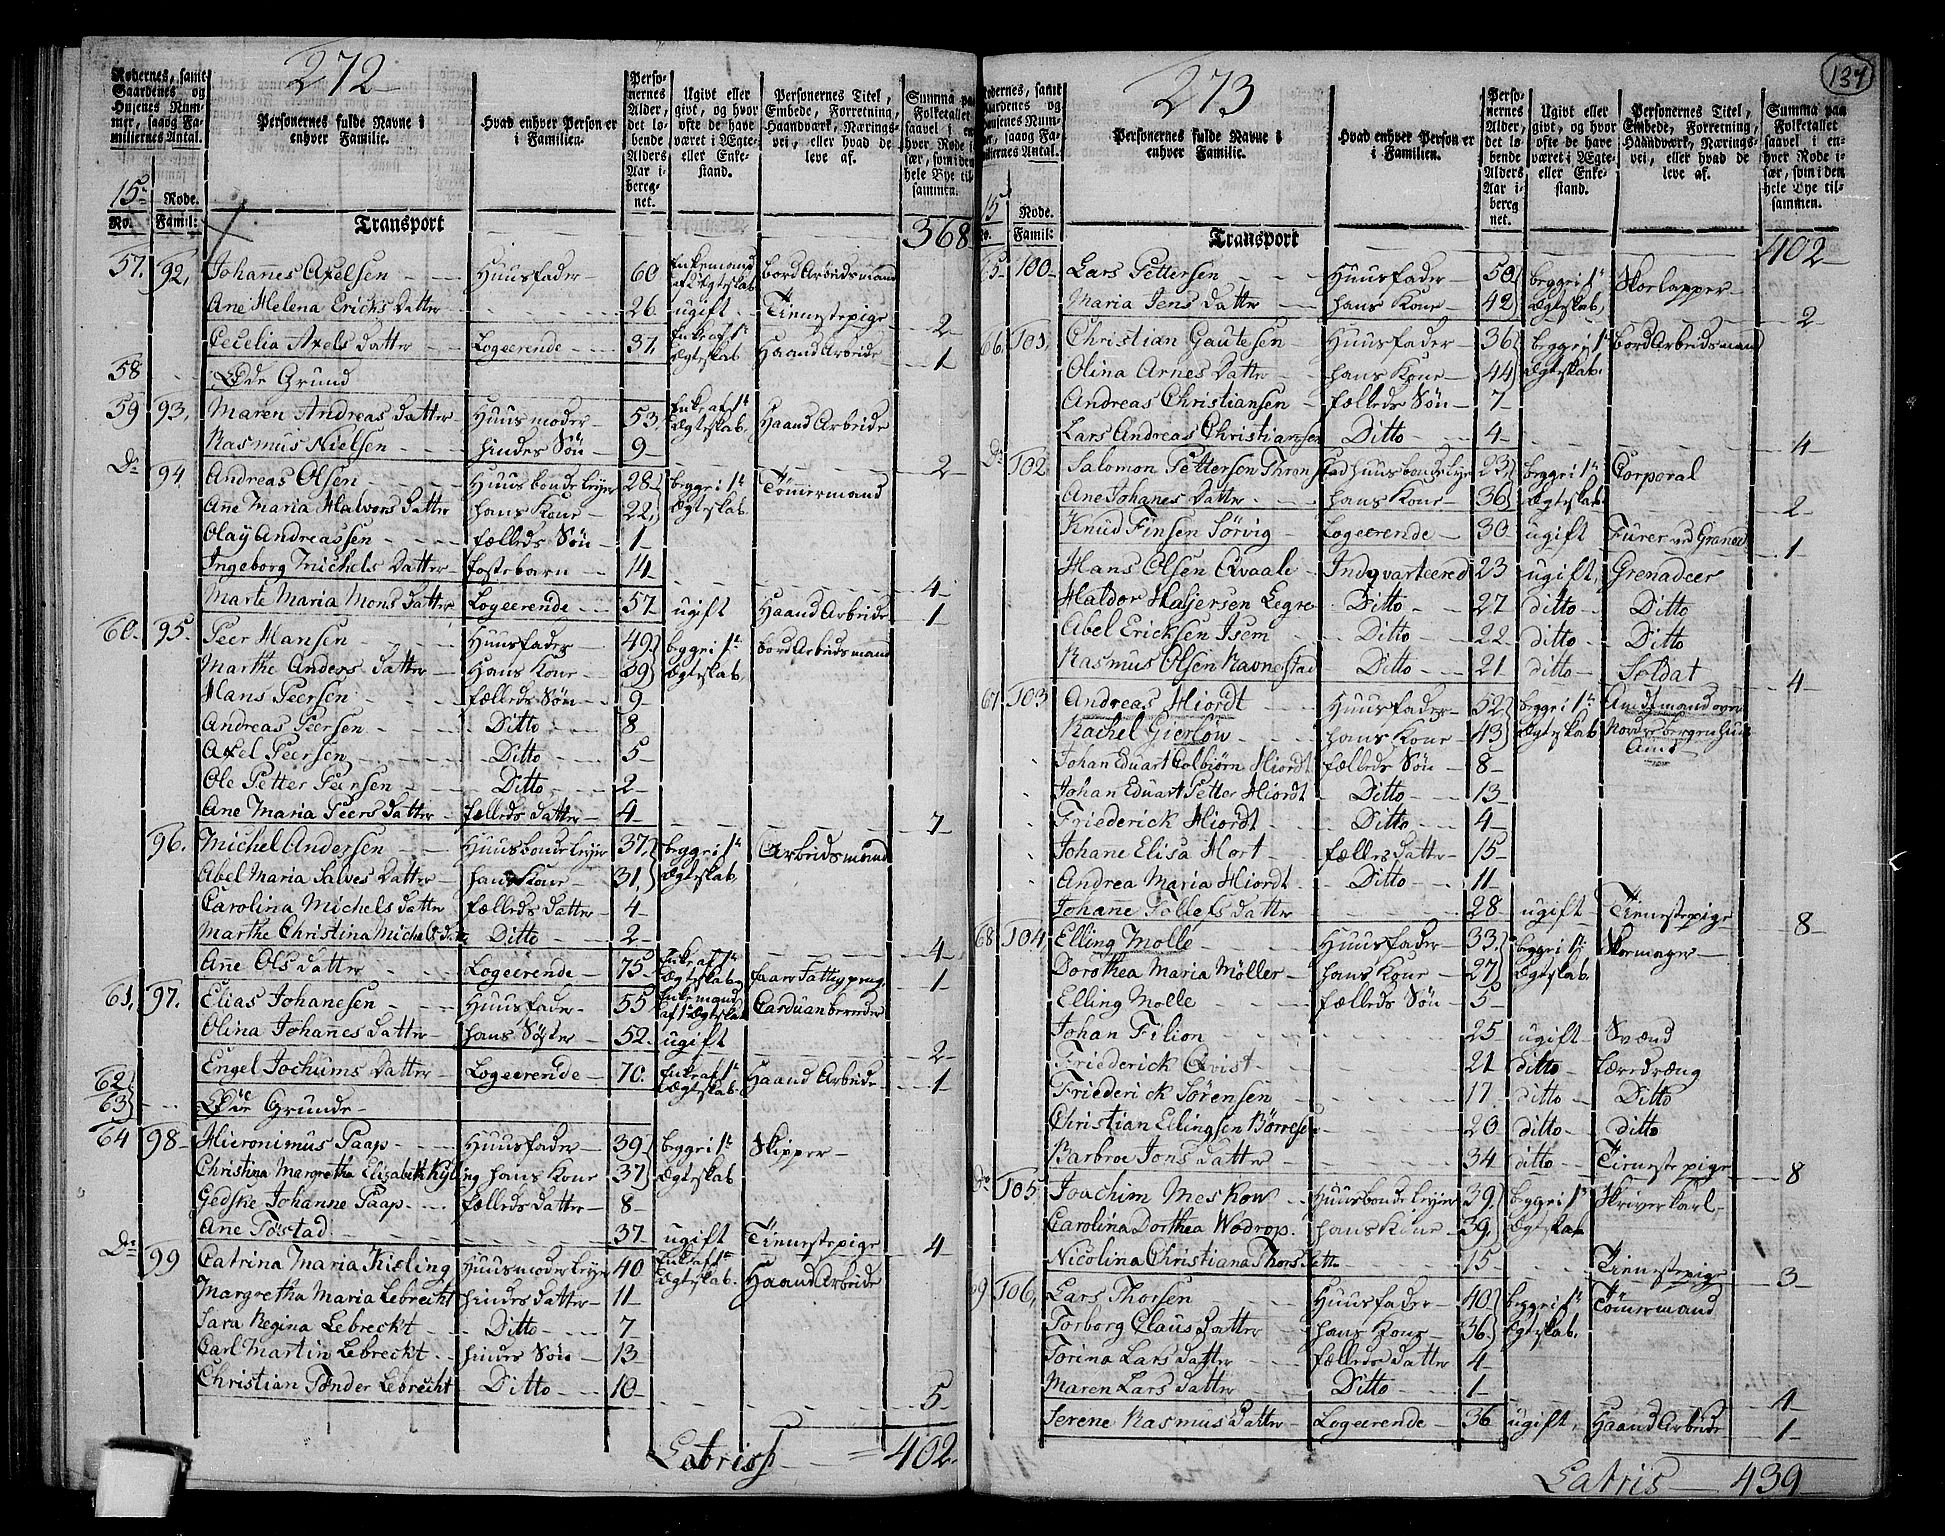 272
Rodernes, samt Gaardenes og Husenes Nummer, saavog Familiernes Antal.
Personernes fulde Navne i enhver Familie.
Hvad enhver Person er i Familien.
Personernes Alder, det løbende Alders Aar iberegnet.
Ugivt eller givt, og hvor ofte de have været i Ægte- eller Enkestand.
Personernes Titel, Embede, Forretning, Haandværk, Næringsvei, eller hvad de leve af.
Summa paa Folketallet saavel i enhver Rode især, som i den hele Bye tilsammen.
15de Rode.
No. Famil: Transport 368
57. 92. Johanes Axelsen Huusfader 60 Enkemand af 1 Ægteskab bord Arbeidsmand
Ane Helena Ericks Datter 26 ugift Tienestepige 2
Cecelia Axels Datter Logeerende 37 Enke af 1t Ægteskab Haand Arbeide 1
58 Øde Grund
59 93. Maren Andreas Datter Huusmoder 53 Enke af 1t Ægteskab Haand Arbeide
Rasmus Nielsen hindes Søn 9 2
Do 94 Andreas Olsen Huusbonde leyer 28 begge i 1t Ægteskab Tömmermand
Ane Maria Halvors Datter hans Kone 22
Olay Andreassen fælleds Søn 1
Ingeborg Michels Datter fostebarn 14 4
Marte Maria Mons Datter Logeerende 57 ugift Haand Arbeide 1
60 95. Peer Hansen Huusfader 49 begge i 1t Ægteskab bord Arbeidsmand
Marthe Anders Datter Hans Kone 39
Hans Peersen fælleds Søn 9
Andreas Peersen Ditto 8
Axel Peersen Ditto 5
Ole Petter Peersen Ditto 2
Ane Maria Peers Datter fælleds datter 4 7
96. Michel Andersen Huusbonde leyer 37 begge i 1t Ægteskab Arbeidsmand
Abel Maria Salves Datter hans Kone 31
Carolina Michels Datter fælleds datter 4
Marthe Christina Michels d. Ditto 2 4
Ane Ols datter Logeerende 75 Enke af 1t Ægteskab faar Fattigpeng 1
61, 97. Elias Johanesen Huusfader 55 Enkemand af 1 Ægteskab Carduanbereder
Olina Johannes datter hans Søster 52 ugift 2
Engel Jochums Datter Logeerende 70 Enke af 1t Ægteskab Haand Arbeide 1
62
63 Øde Grunde
64 98 Hieronimus Paap Huusfader 39 begge i 1t Ægteskab Skipper
Christina Margretha Elisabeth Kyling hans Kone 37
Gedske Johanne Paap fælleds datter 8
Ane Töstad 37 ugift Tienestepige 4
Do 99 Catrina Maria Kisling Huusmoder leyer 40 Enke af 1t Ægteskab Haand Arbeide
Margretha Maria Lebrecht hindes datter 11
Sara Regina Lebreckt Ditto 7
Carl Martin Lebreckt hindes Søn 13
Christian Tønder Lebrecht Ditto 10 5
402
273
137
Rodernes, samt Gaardenes og Husenes Nummer, saavog Familiernes Antal.
Personernes fulde Navne i enhver Familie.
Hvad enhver Person er i Familien.
Personernes Alder, det løbende Alders Aar iberegnet.
Ugivt eller givt, og hvor ofte de have været i Ægte- eller Enkestand.
Personernes Titel, Embede, Forretning, Haandværk, Næringsvei, eller hvad de leve af.
Summa paa Folketallet saavel i enhver Rode især, som i den hele Bye tilsammen.
15 Rode.
No. Famil: Transport 402
65 100 Lars Pettersen Huusfader 50 begge i 1t Ægteskab Skorlapper
Maria Jens Datter hans Kone 42 2
66 101 Christian Gautesen Huusfader 36 begge i 1t Ægteskab bord Arbeidsmand
Olina Arnes Datter hans Kone 44
Andreas Christiansen fælleds Søn 7
Lars Andreas Christiansen Ditto 4 4
Do 102 Salomon Pettersen Huusbonde leyer 23 begge i 1t Ægteskab Corporal
Ane Johanes Datter hans Kone 36 2
Knud Finsen Sörvig Logeerende 30 ugift Furer ved Granad 1
Hans Olsen Qvaale Indqvarteered 23 ugift Grenadeer
Haldor Halgersen Legre Ditto 27 ditto Ditto
Abel Ericksen Isem Ditto 22 ditto Ditto
Rasmus Olsen Ravnestad Ditto 21 ditto Soldat 4
67 103 Andreas Hiordt Huusfader 52 begge i 1t Ægteskab Amdtmand over Nordre bergenhuus Amd
Rachel Gierlöw hans Kone 43
Johan Eduart Colbiörn Hiordt fælleds Søn 8
Johan Eduart Petter Hiordt Ditto 13
Friederick Hiordt Ditto 4
Johane Elisa Hiort fælles datter 15
Andrea Maria Hiordt Ditto 11
Johane Tollefs datter 28 ugift Tienestepige 8
68 104 Elling Molle Huusfader 33 begge i 1t Ægteskab Skormager
Dorothea Maria Möller hans Kone 27
Elling Molle fælleds Søn 5
Johan Filion 25 ugift Svænd
Friederick Qvist 21 ditto Læredræng
Friederick Sörensen 17 ditto Ditto
Christian Ellingsen Börresen 20 ditto ditto
Barbroe Jons datter 34 ditto Tienestepige 8
Do 105 Joachim Meskow Huusbonde leyer 39 begge i 1t Ægteskab Skriverkarl
Carolina Dorthea Wodrop hans Kone 39
Nicolina Christiana Thors datter 15 Tienestepige 3
69 106 Lars Thorsen Huusfader 40 begge i 1t Ægteskab Tömermand
Torborg Claus Datter hans Kone 36
Torina Lars datter fælleds datter 4
Maren Lars datter Ditto 1 4
Serene Rasmus Datter Logeerende 36 ugift Haand Arbeide 1
Latris 439